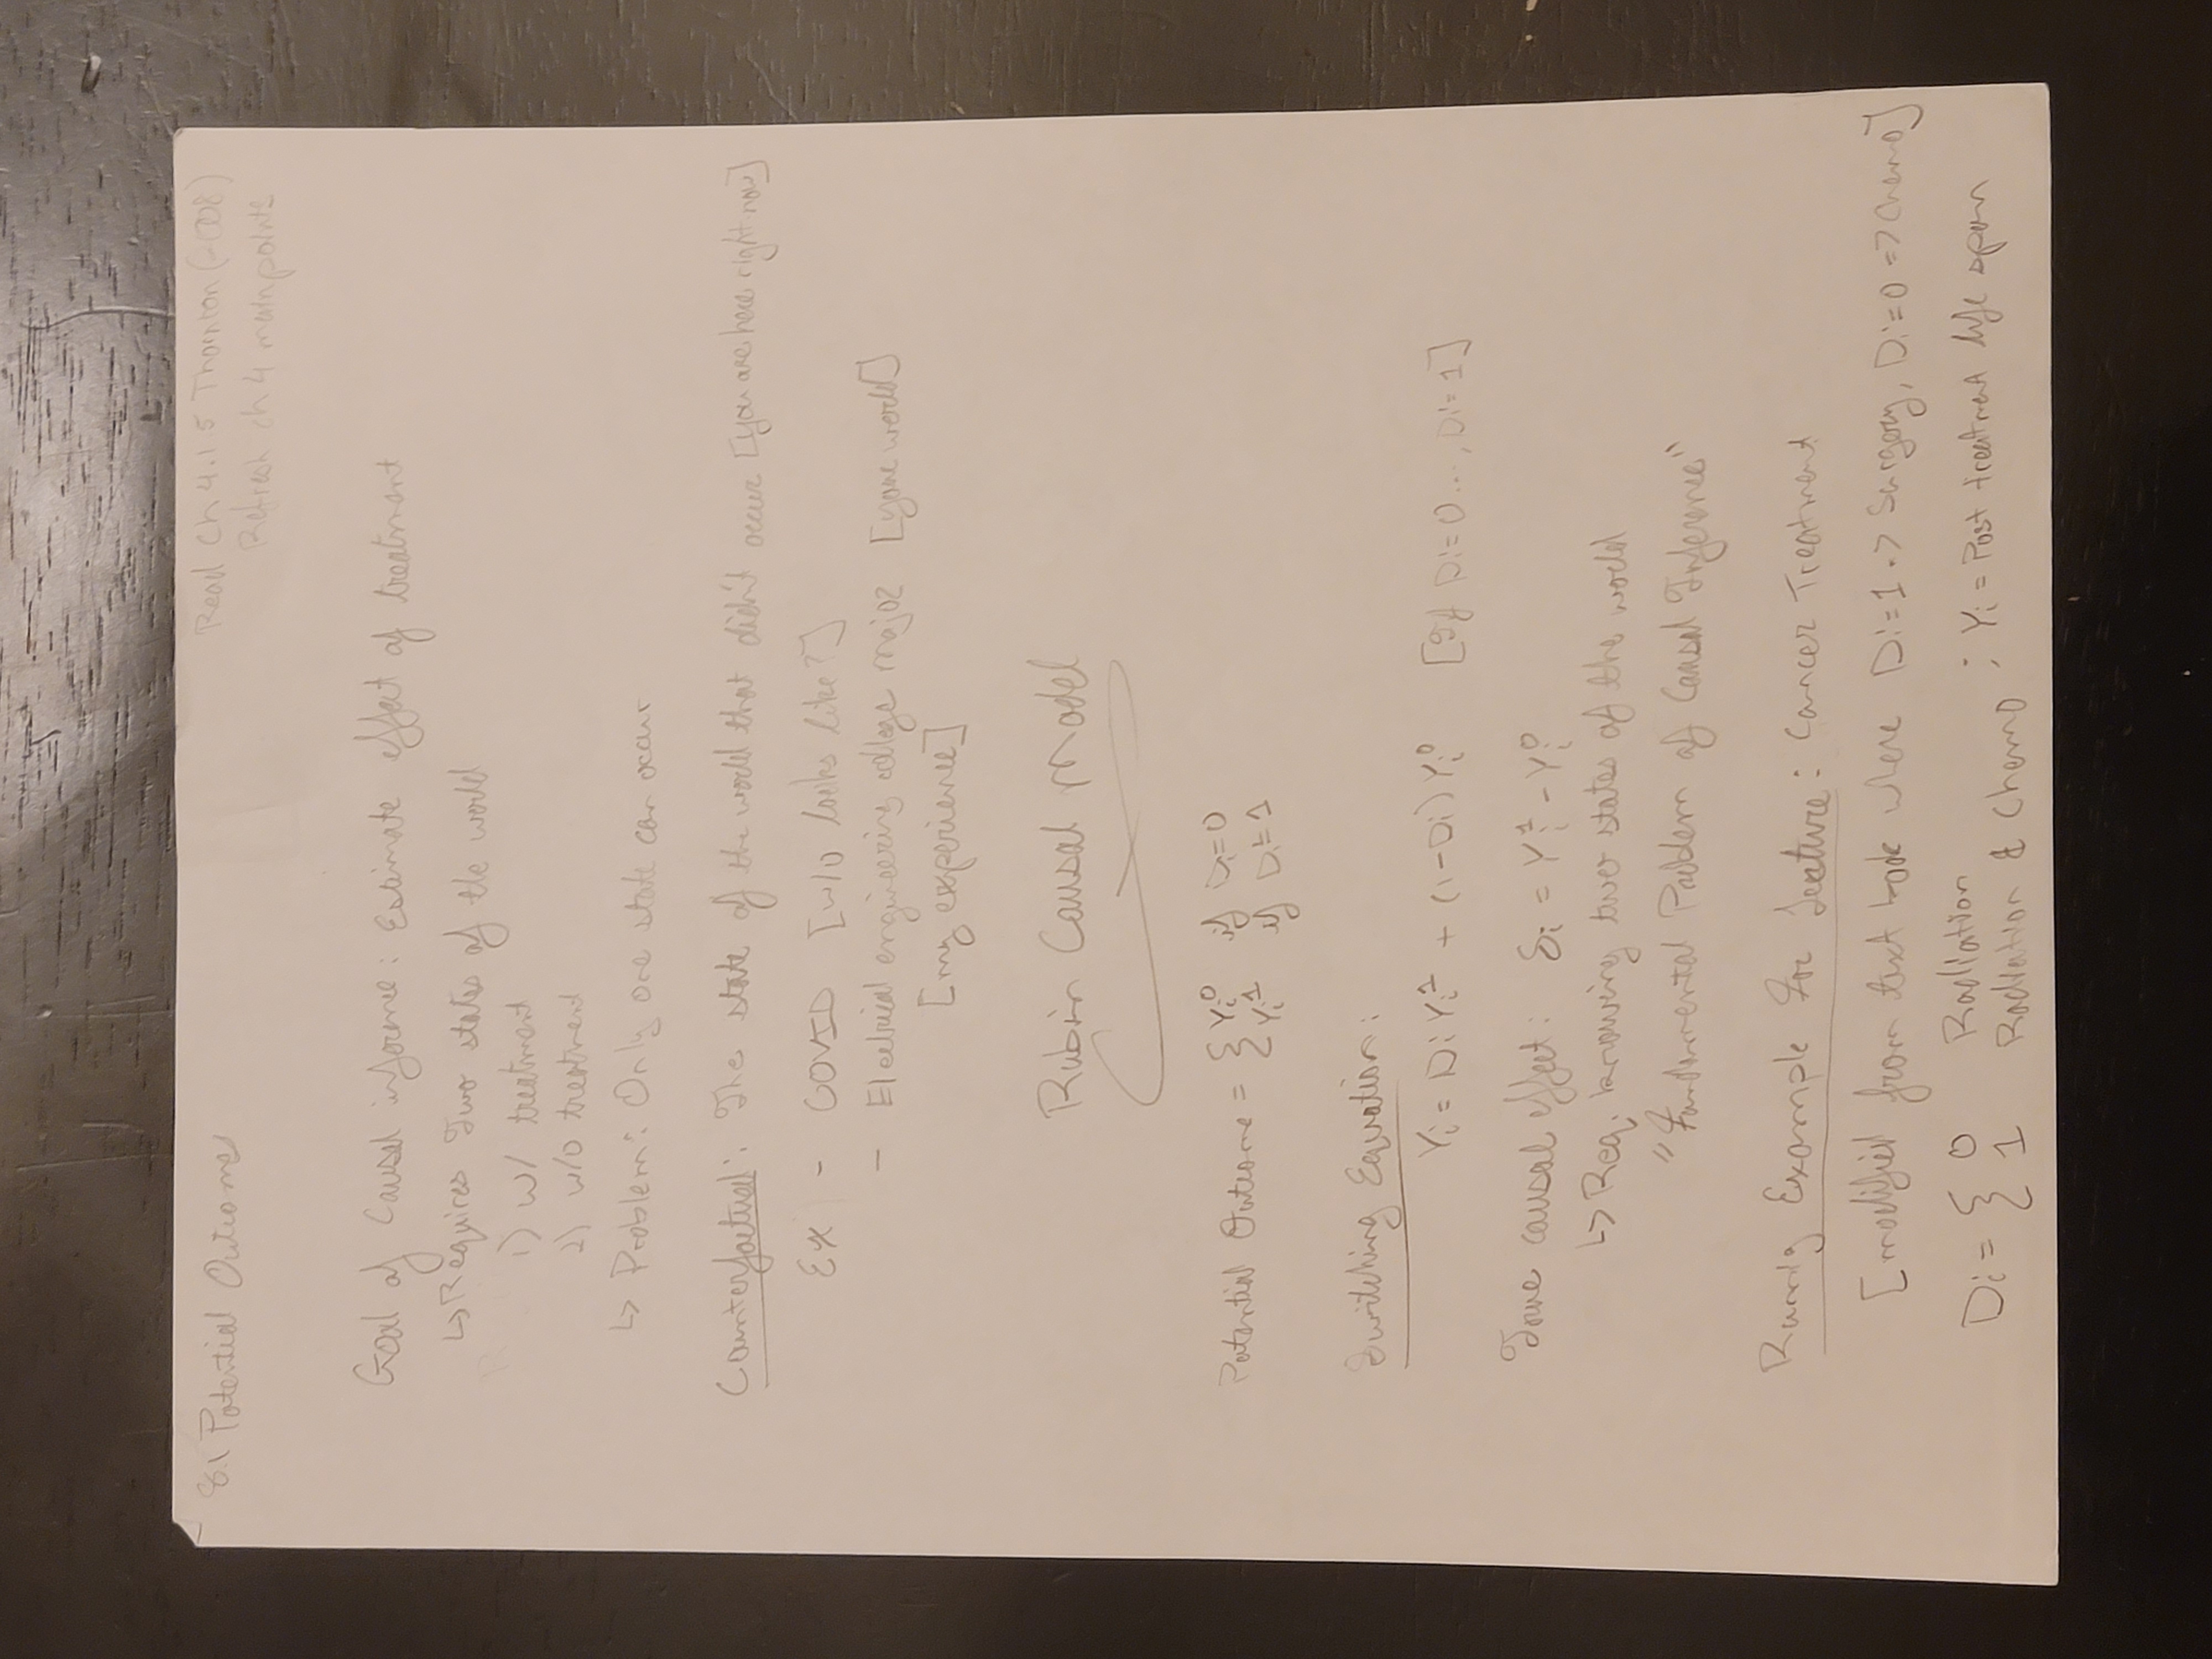 8.1 Potential Outcomes
Read Ch 4.1.5 Thornton (-008)
Refresh ch 4 main points
Goal of Causal inference: Estimate effect of treatment
↳ Requires Two states of the world
1) w/ treatment
2) w/o treatment
↳ Problem: Only one state can occur
Counterfactual: The state of the world that didn't occur [you are here right now]
Ex - COVID [w/o looks like?]
- Electrical engineering college major [your world]
[my experience]
Rubin Causal Model
Potential Outcome = { Yi⁰ if Di=0
Yi¹ if Di=1
Switching Equation:
Yi = DiYi¹ + (1-Di)Yi⁰ [If Di=0..., Di=1]
True causal effect: δi = Yi¹ - Yi⁰
↳ Req. knowing two states of the world
"Fundamental Problem of Causal Inference"
Runnig Example For Lecture: Cancer Treatment
[modified from text book where Di=1 => Surgery, Di=0 => Chemo]
Di = { 0 Radiation ; Yi = Post treatment life span
1 Radiation & Chemo